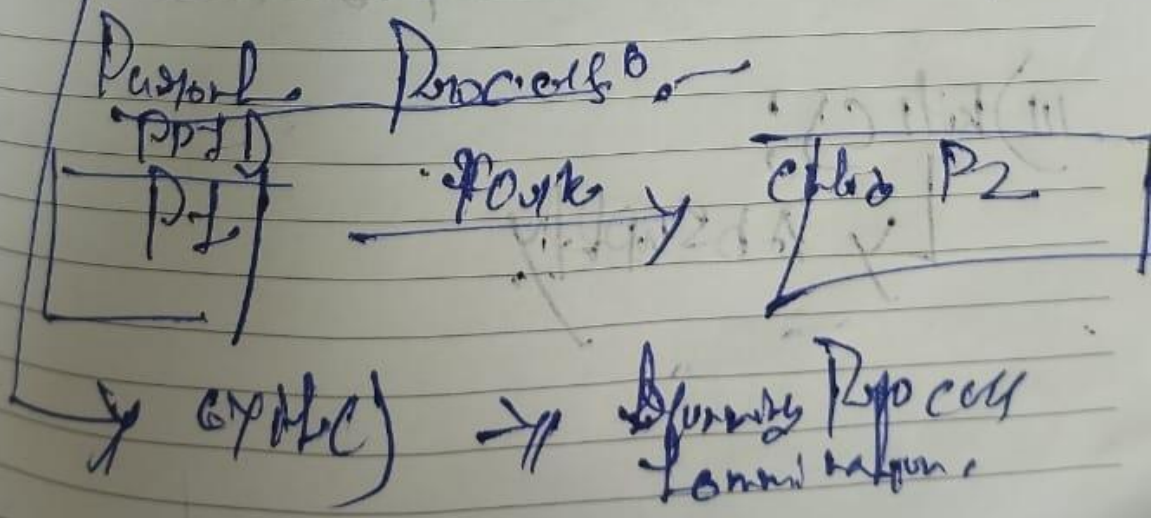 Parent Process :-
PPID
P1 Fork Child P2
exit() → During Process
termination.